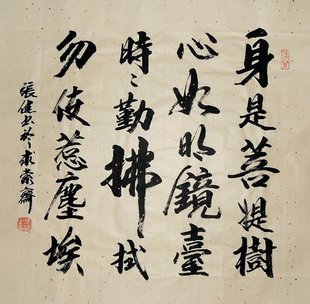 身是菩提樹
心如明鏡臺
時時勤拂拭
勿使惹塵埃
張健書於